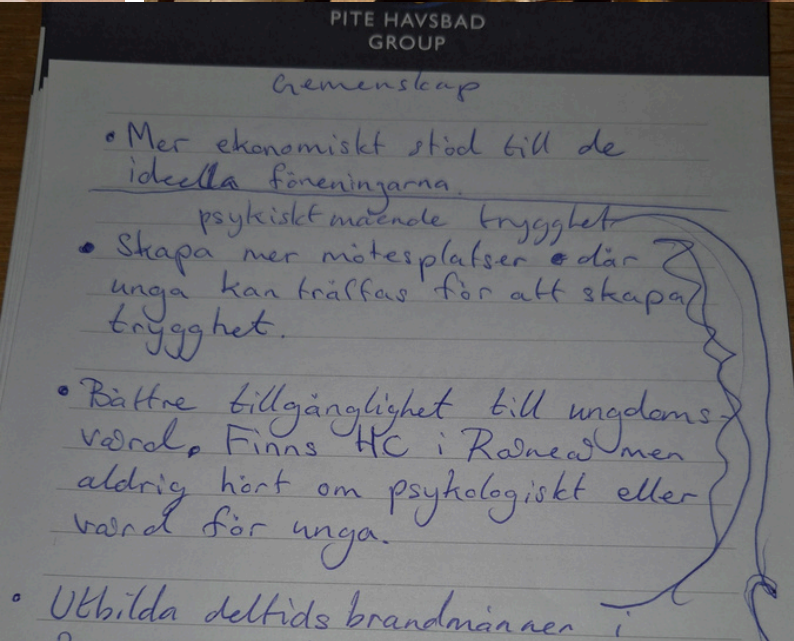 PITE HAVSBAD
GROUP
Gemenskap
• Mer ekonomiskt stöd till de
ideella föreningarna.
psykiskt mående trygghet
• Skapa mer mötesplatser där
unga kan träffas för att skapa
trygghet.
• Bättre tillgänglighet till ungdoms-
vård. Finns HC i Råneå men
aldrig hört om psykologiskt eller
vård för unga.
• Utbilda deltids brandmännen i